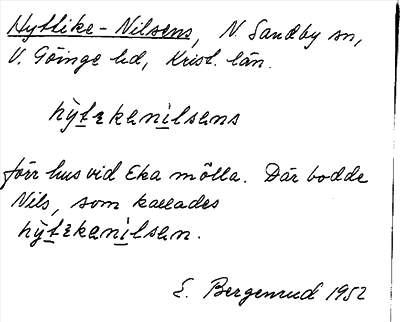 Hyttike-Nilsens, N Sandby sn,
V. Göinge hd, Krist. län.
hỳ̱ṯɛkani̱lsens
förr hus vid Eka mölla. Där bodde
Nils, som kallades
hỳ̱ṯɛkani̱lsen.
E. Bergenrud 1952